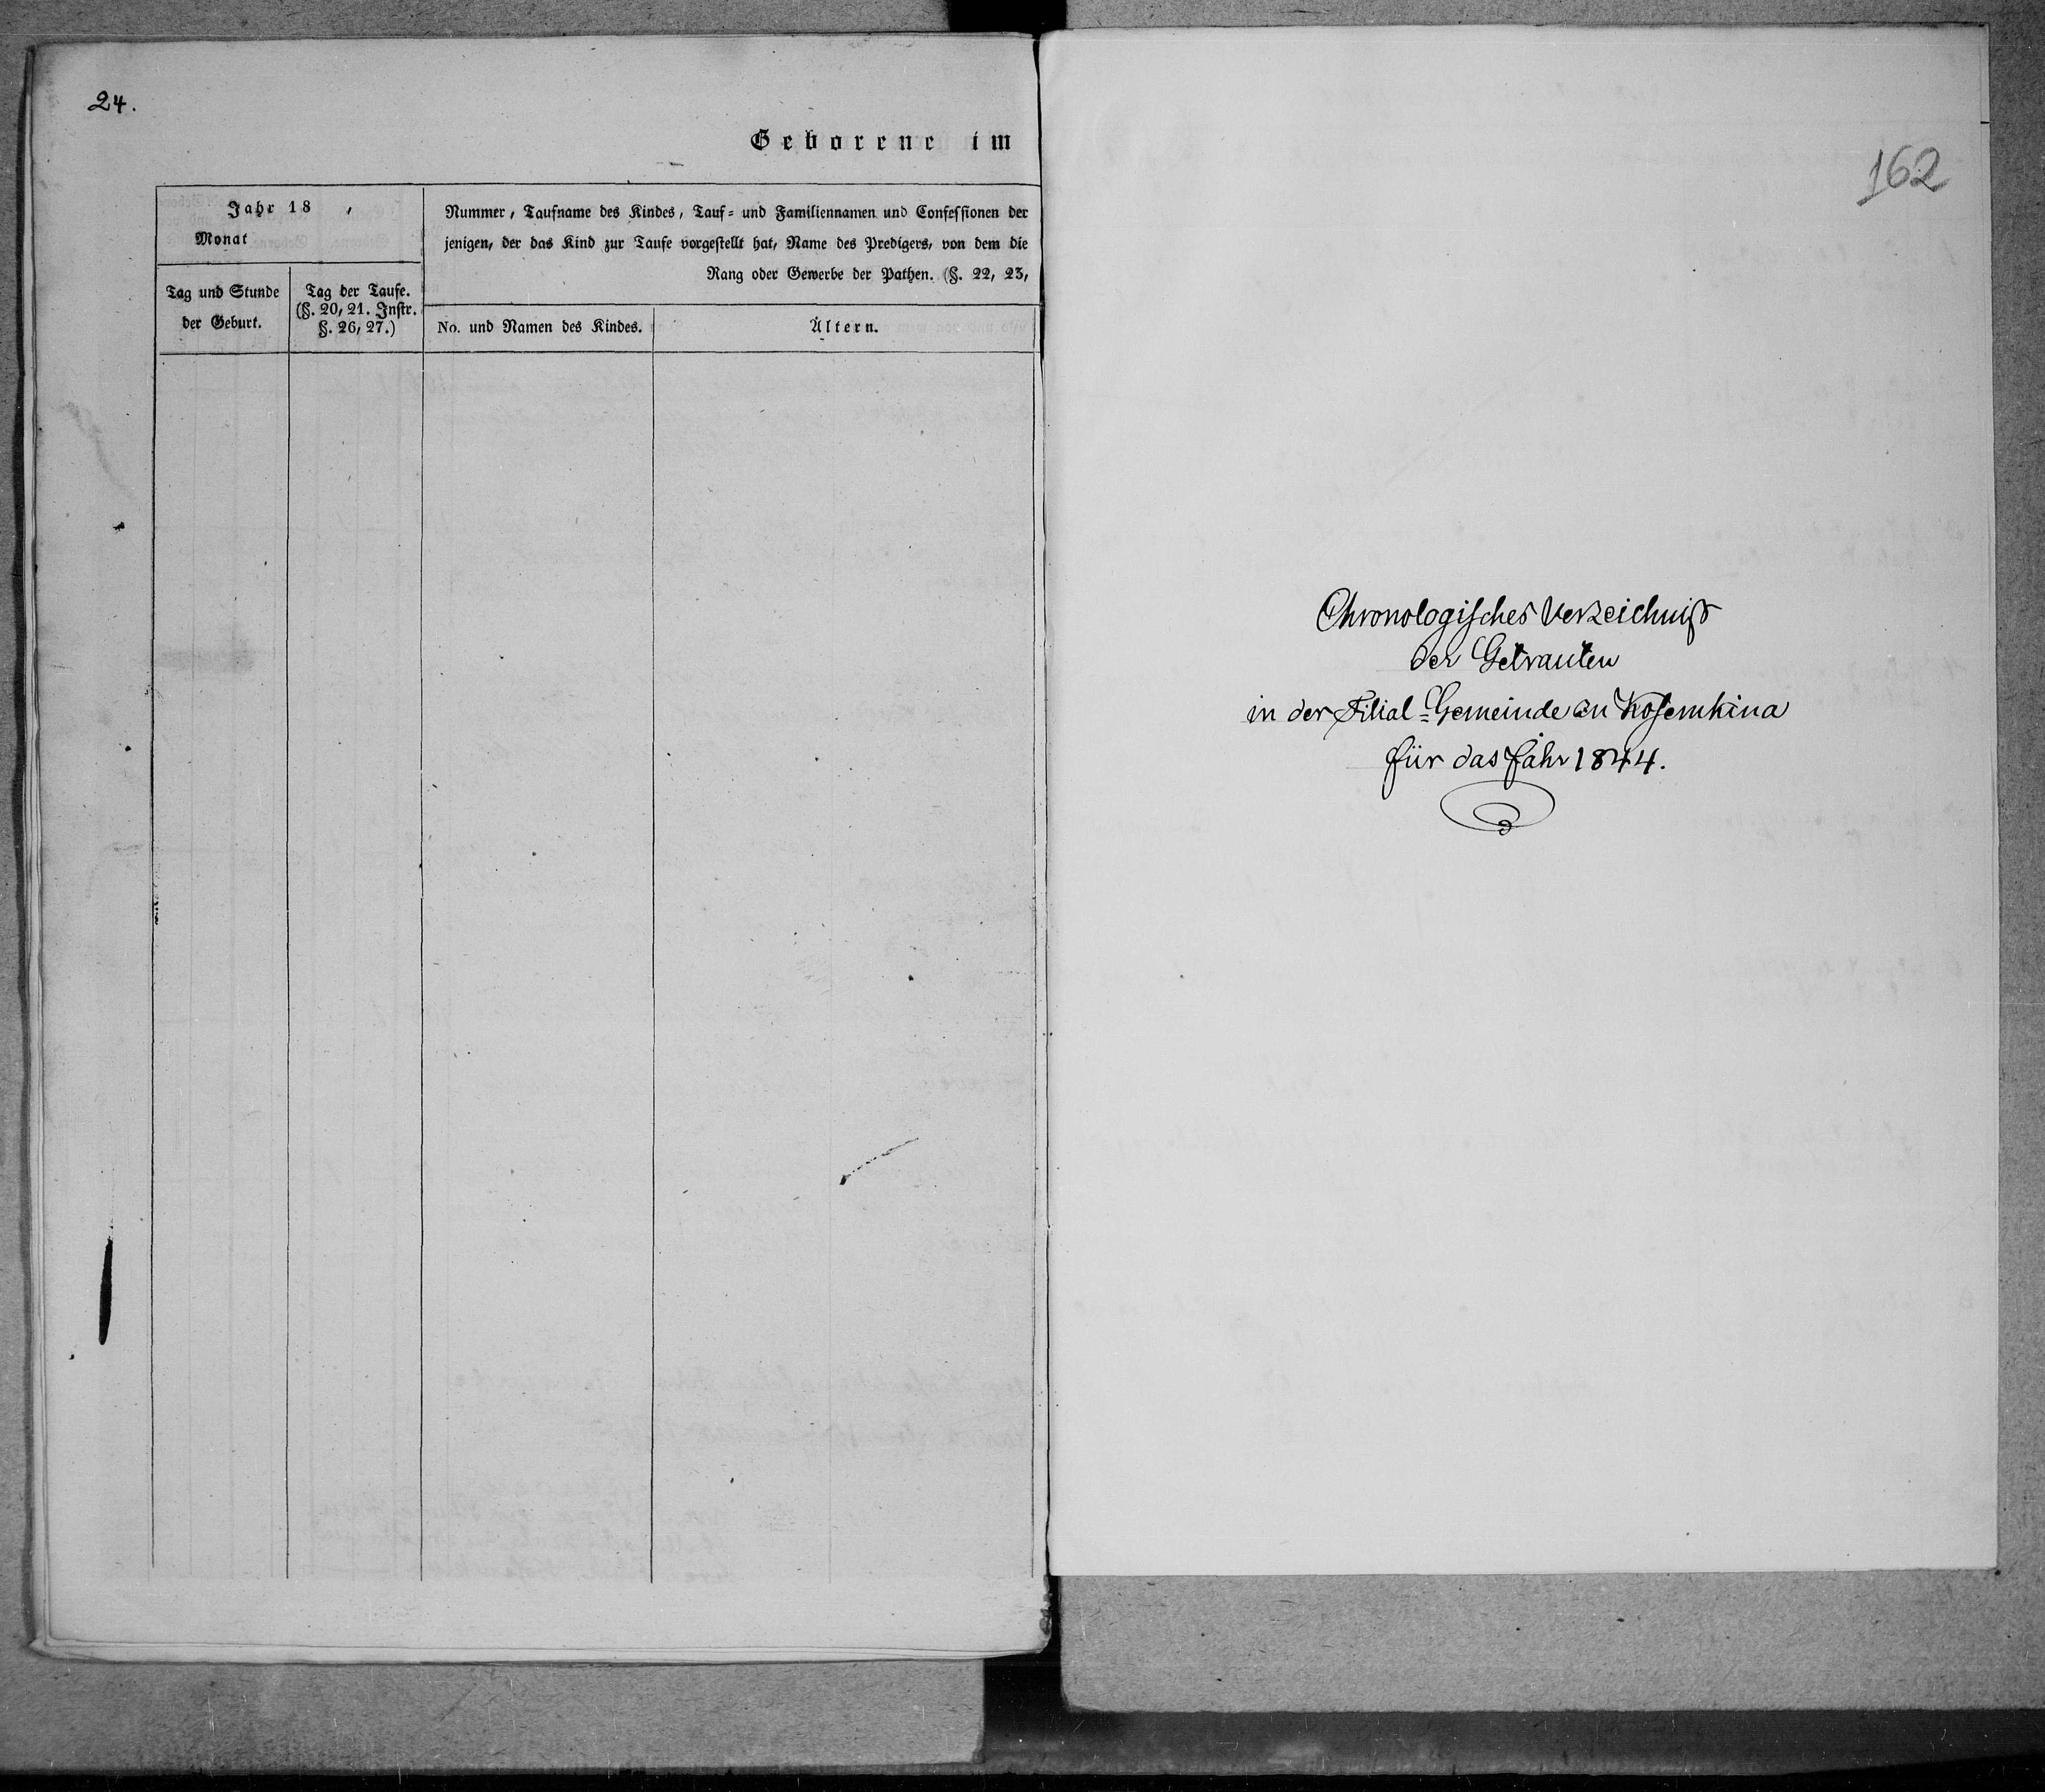 24.
Geborene im
Jahr 18 ,
Monat
Nummer, Taufname des Kindes, Tauf= und Familiennamen und Confessionen der
jenigen, der das Kind zur Taufe vorgestellt hat, Name des Predigers, von dem die
Rang oder Gewerbe der Pathen. (§. 22, 23,
Tag und Stunde
der Geburt.
Tag der Taufe.
(§. 20, 21. Instr.
§. 26, 27.)
No. und Namen des Kindes.
Ältern.
162
Chronologisches Verzeichniß
der Getrauten
in der Filial=Gemeinde zu Kosemkina
für das Jahr 1844.